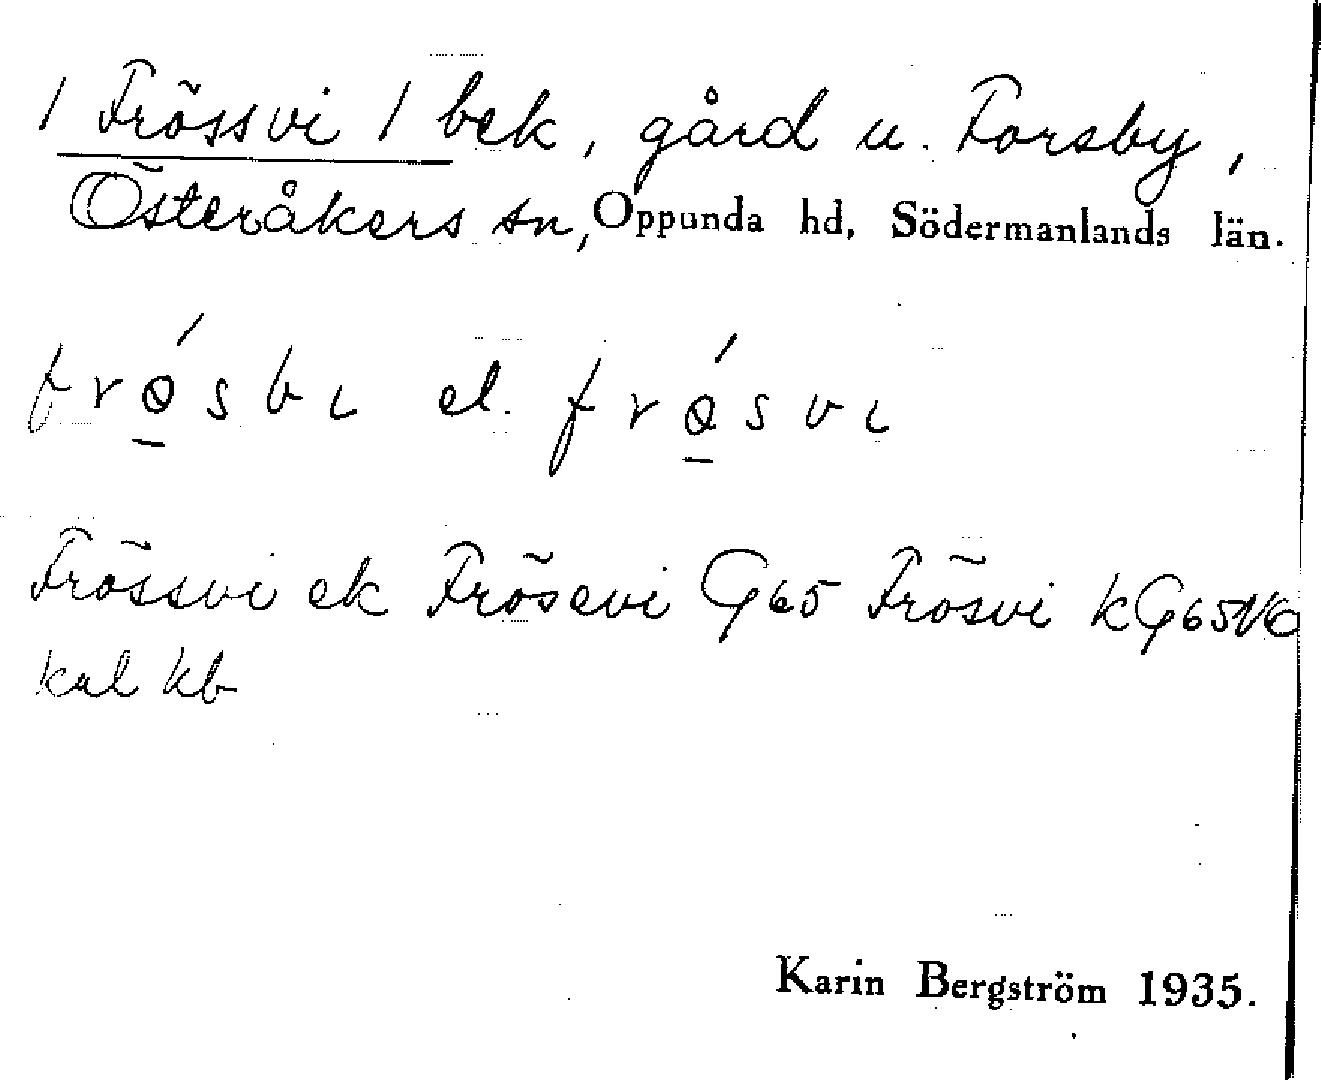 / Frössvi / bek, gård u. Forsby,
Österåkers sn, Oppunda hd, Södermanlands län.
frǿ̠sbɩ el. frǿ̠svɩ
Frössvi ek Frösevi G65 Frösvi kG65V6
kal kb
Karin Bergström 1935.